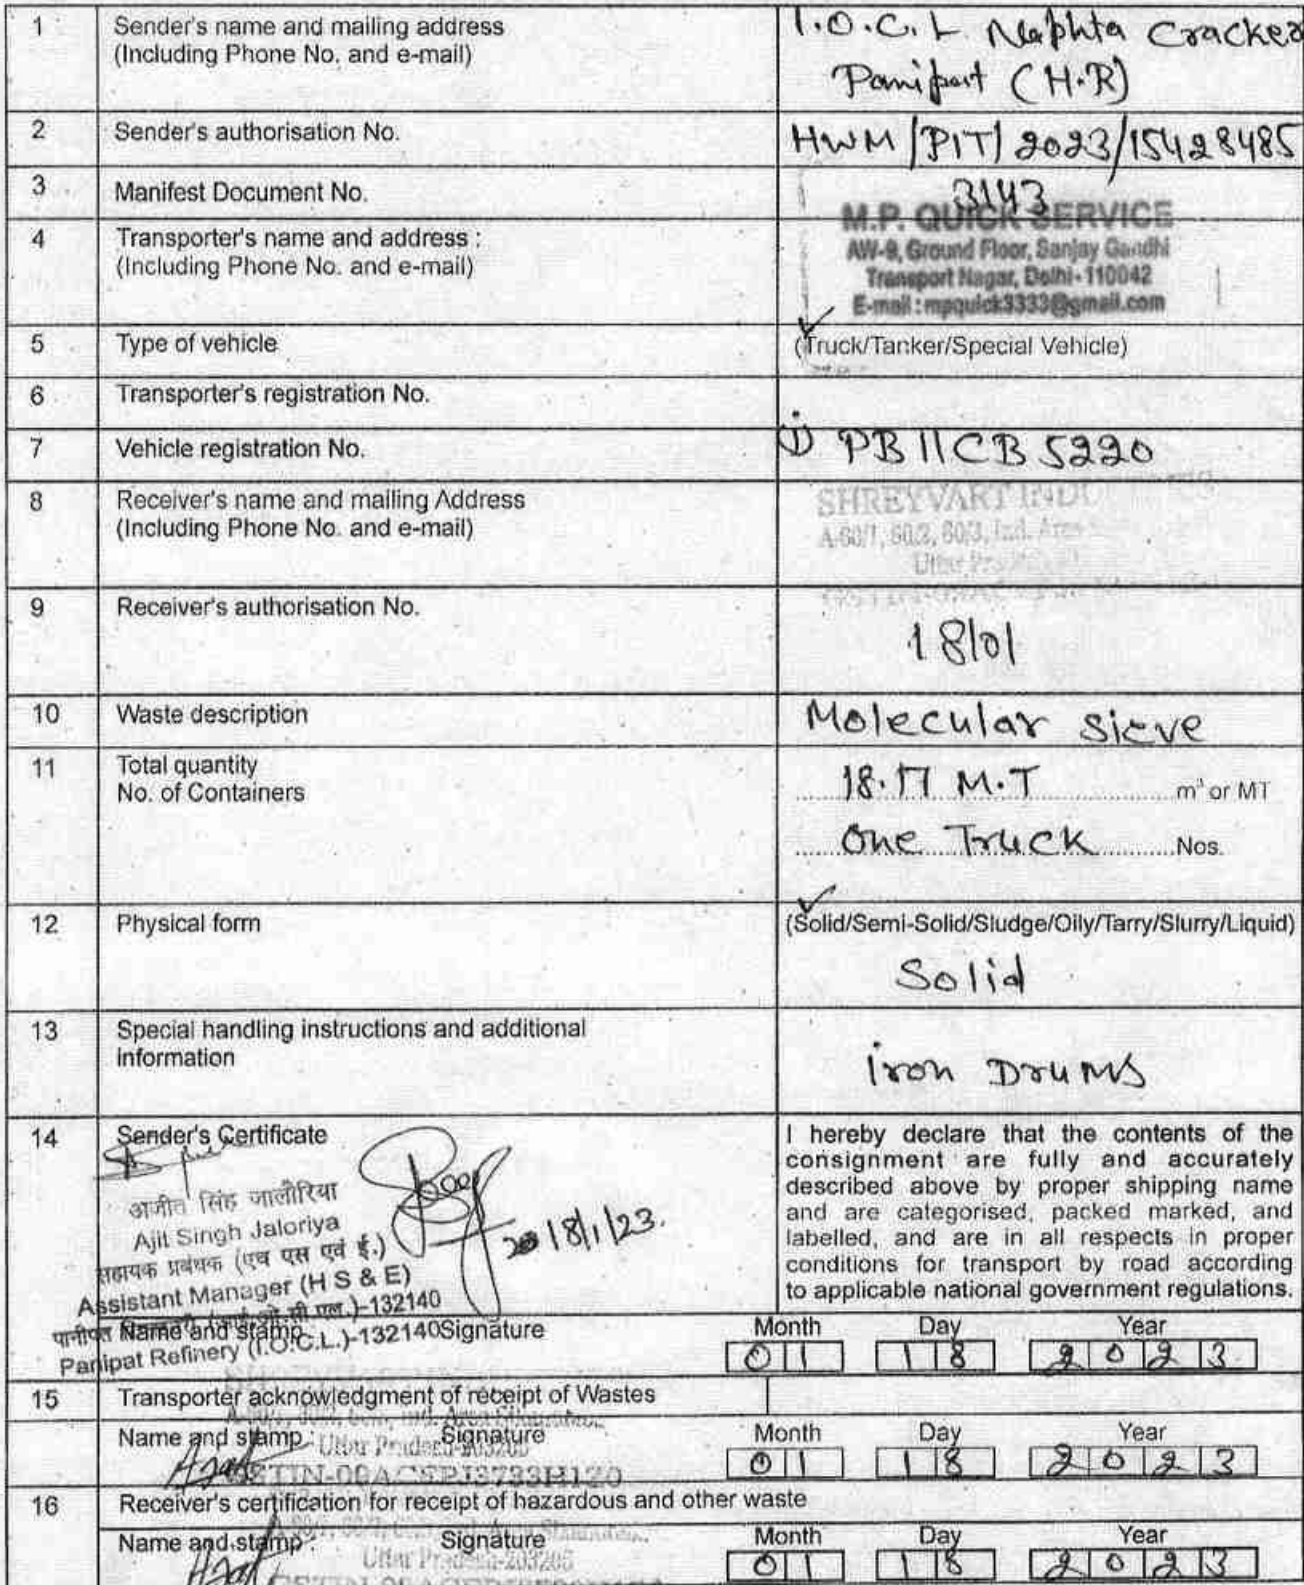 1 Sender's name and mailing address I.O.C.L Naphta Cracker
(Including Phone No. and e-mail) Panipat (H.R)
2 Sender's authorisation No. HWM/PIT/2023/15428485
3 Manifest Document No. 3143
4 Transporter's name and address : M.P. QUICK SERVICE
(Including Phone No. and e-mail) AW-9, Ground Floor, Sanjay Gandhi
Transport Nagar, Delhi-110042
E-mail : mpquick3333@gmail.com
5 Type of vehicle (Truck/Tanker/Special Vehicle)
6 Transporter's registration No.
7 Vehicle registration No. (1) PB11CB5220
8 Receiver's name and mailing Address SHREYVART
(Including Phone No. and e-mail) A-60/1, 60/2, 60/3, Ind. Area
Uttar
9 Receiver's authorisation No.
18/01
10 Waste description Molecular Sieve
11 Total quantity 18.17 M.T m³ or MT
No. of Containers One Truck Nos.
12 Physical form (Solid/Semi-Solid/Sludge/Oily/Tarry/Slurry/Liquid)
Solid
13 Special handling instructions and additional
information Iron Drums
14 Sender's Certificate
अजीत सिंह जालोरिया
Ajit Singh Jaloriya
सहायक प्रबंधक (एच एस एवं ई.)
Assistant Manager (H S & E)
पानीपत सी.एल.)-132140
Panipat Refinery (I.O.C.L.)-132140
18/1/23.
I hereby declare that the contents of the
consignment are fully and accurately
described above by proper shipping name
and are categorised, packed marked, and
labelled, and are in all respects in proper
conditions for transport by road according
to applicable national government regulations.
Name and stamp Signature Month Day Year
01 18 2023
15 Transporter acknowledgment of receipt of Wastes
Name and stamp : Signature Month Day Year
Uttar Pradesh-203205
01 18 2023
16 Receiver's certification for receipt of hazardous and other waste
Name and stamp : Signature Month Day Year
Uttar Pradesh-203205
01 18 2023